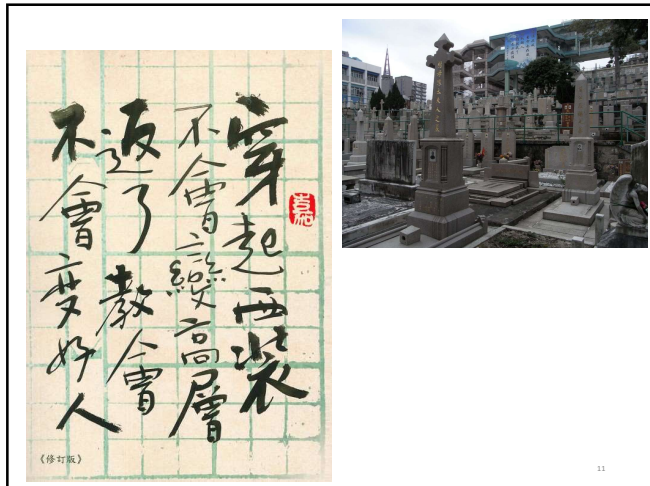 穿起西裝
不會變高層
返了教會
不會变好人
《修訂版》
11